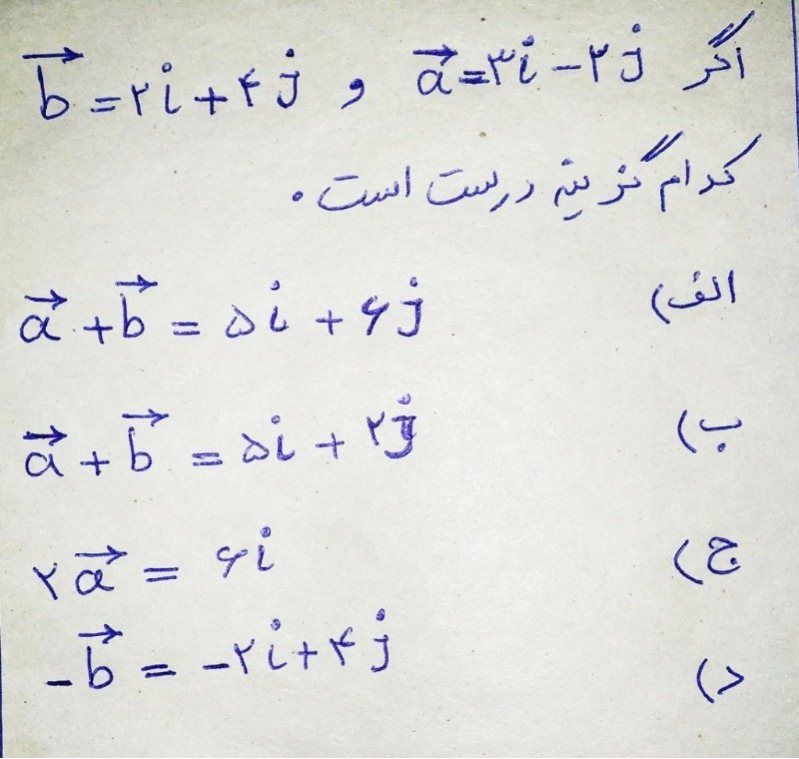 اگر a⃗=۳i-۲j و b⃗=۲i+۴j
کدام گزینه درست است.
الف) a⃗+b⃗=۵i+۶j
ب) a⃗+b⃗=۵i+۲j
ج) ۲a⃗=۶i
د) -b⃗=-۲i+۴j